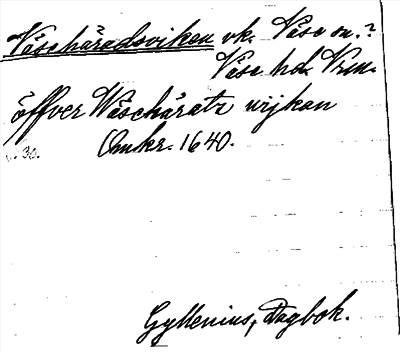 Väsehäradsviken vk. Väse sn.?
Väse hd. Vrm.
öffver Wäsehäratz wijkan
s. 30. Omkr. 1640.
Gyllenius, Dagbok.